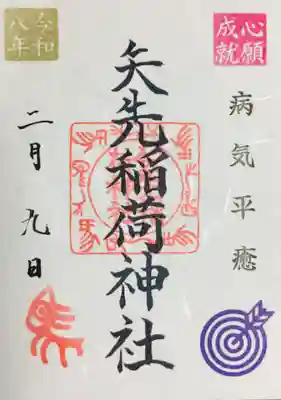 心願
成就
病気平癒
矢先稲荷神社
令和
八年
二月九日